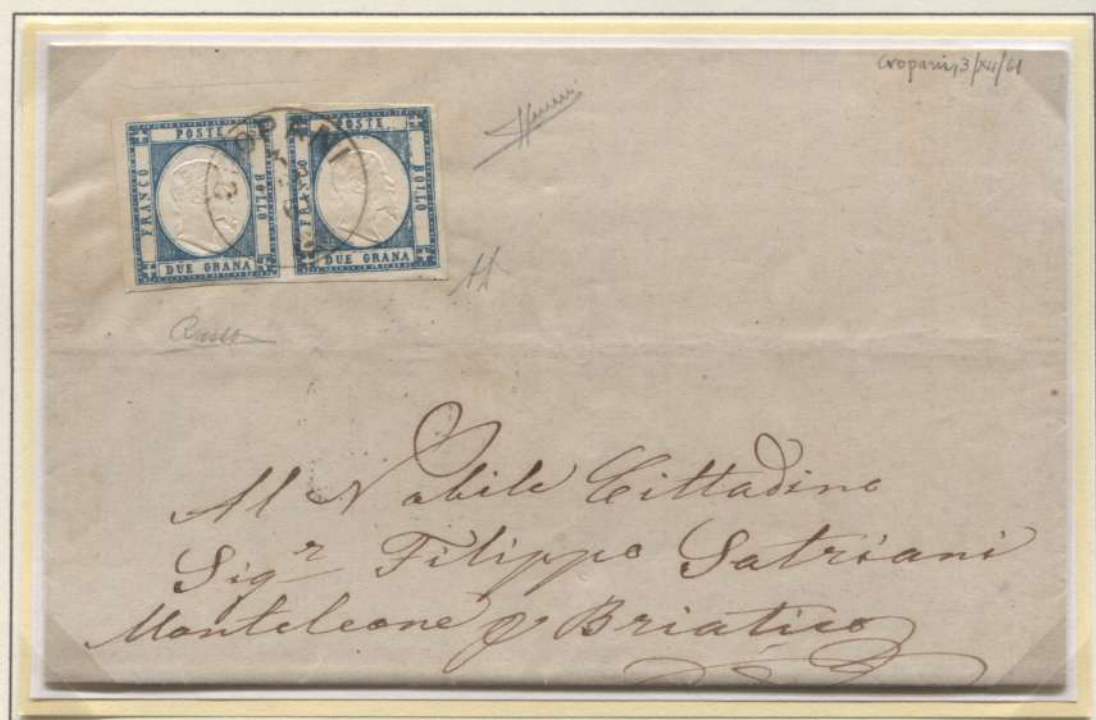 Cropani, 3/XII/61
POSTE
FRANCO
BOLLO
DUE GRANA
POSTE
FRANCO
BOLLO
DUE GRANA
CROPANI
Al Nobile Cittadino
Sigr Filippo Satriani
Monteleone p Briatico